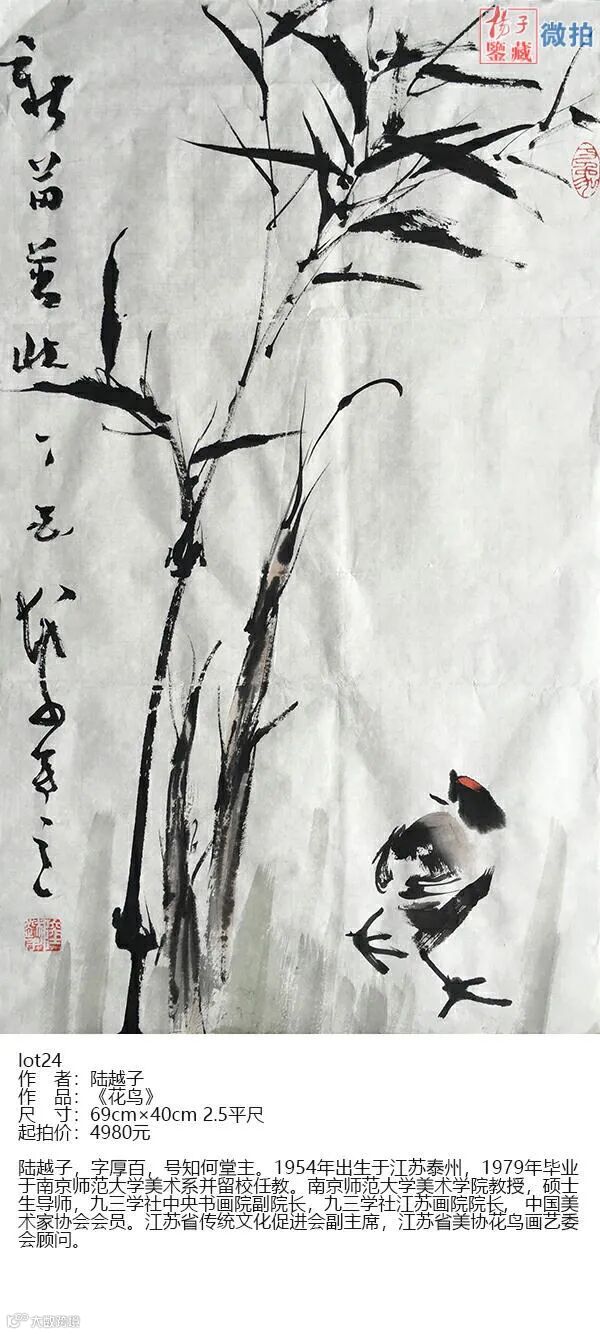 揚子
鑒藏
微拍
新苗
丁
lot24
作 者：陆越子
作 品：《花鸟》
尺 寸：69cm×40cm 2.5平尺
起拍价：4980元
陆越子，字厚百，号知何堂主。1954年出生于江苏泰州，1979年毕业
于南京师范大学美术系并留校任教。南京师范大学美术学院教授，硕士
生导师，九三学社中央书画院副院长，九三学社江苏画院院长，中国美
术家协会会员。江苏省传统文化促进会副主席，江苏省美协花鸟画艺委
会顾问。